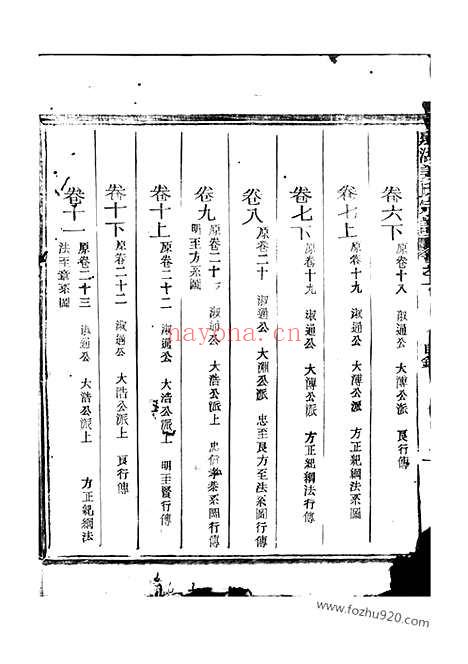 卷六下 原卷十八 淑通公 大溥公派 良行傳
卷七上 原卷十九 淑通公 大溥公派 方正紀綱法系圖
卷七下 原卷十九 淑通公 大溥公派 方正紀綱法行傳
卷八 原卷二十 淑通公 大淵公派 忠至良方至法系圖行傳
卷九 原卷二十 淑通公 大浩公派上 忠信 系圖行傳
明至方系圖
卷十上 原卷二十二 淑通公 大浩公派上 明至賢行傳
卷十下 原卷二十二 淑通公 大浩公派上 良行傳
卷十一 原卷二十三 淑通公 大浩公派上 方正紀綱法
法至章系圖
hayona.cn
www.fozhu920.com